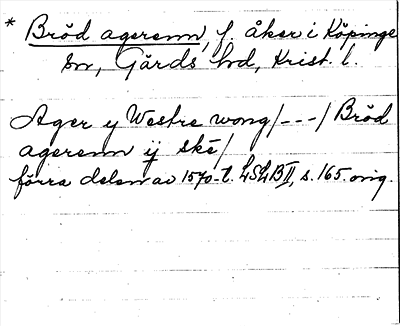 * Bröd agerenn, f. åker i Köpinge
sn, Gärds hd, Krist. l.
Ager y Westre wong/---/Bröd
agerenn ij skē/
förra delen av 1570-t. LSLB II, s. 165. orig.